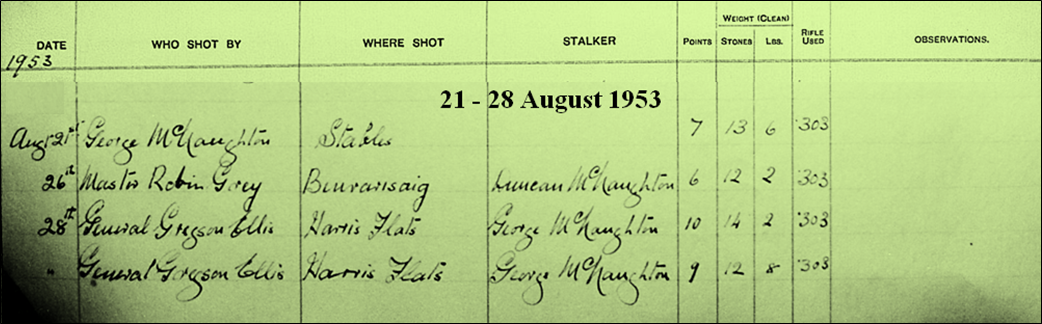 WEIGHT (CLEAN)
DATE WHO SHOT BY WHERE SHOT STALKER POINTS STONES LBS. RIFLE USED OBSERVATIONS.
1953
21 - 28 August 1953
Aug 21st George McNaughton Stables 7 13 6 .303
26th Master Robin Gorey Duncan McNaughton 6 12 2 .303
28th General Gregson Ellis Harris Flats George McNaughton 10 14 2 .303
" General Gregson Ellis Harris Flats George McNaughton 9 12 8 .303